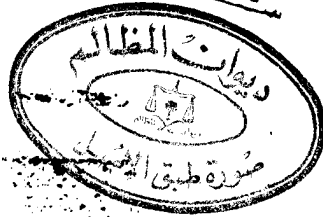 ديوان المظالم
صورة طبق الأصل